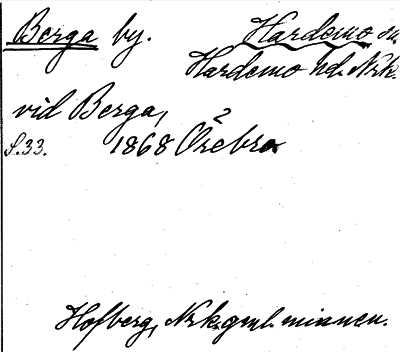 Berga by. Hardemo sn.
Hardemo hd. Nrk.
vid Berga,
S.33. 1868 Örebro
Hofberg, Nrk. gml. minnen.